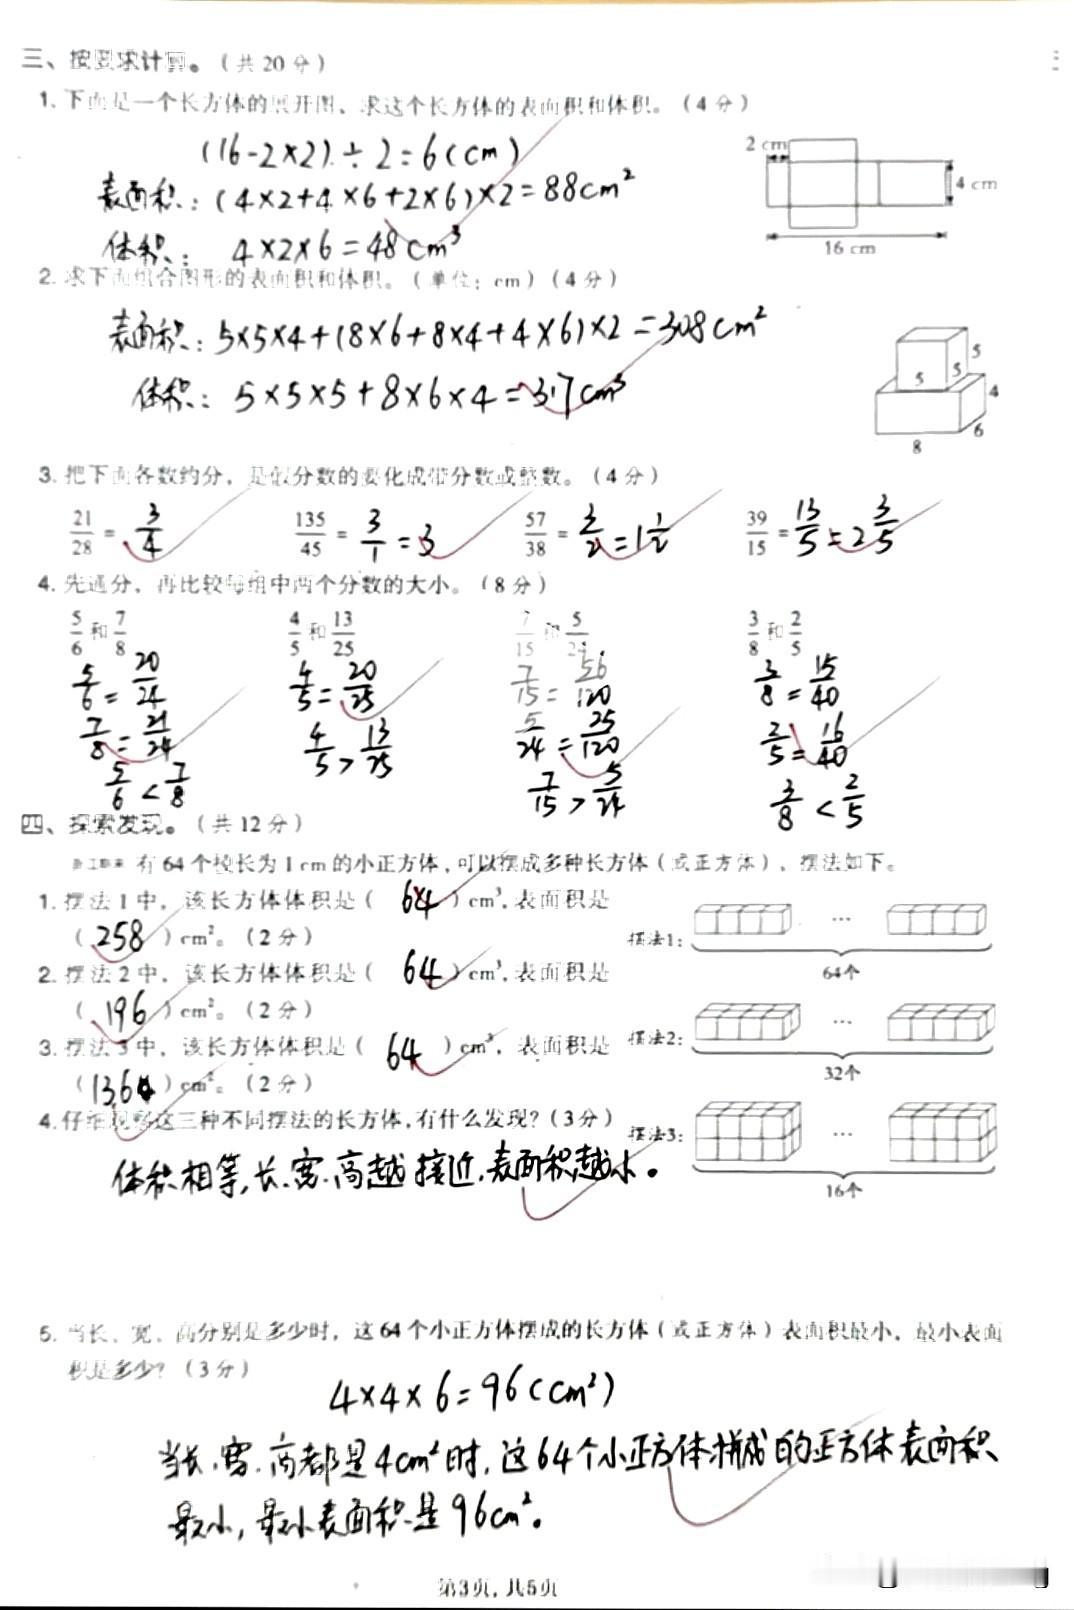 三、按要求计算。(共20分)
1. 下面是一个长方体的展开图、求这个长方体的表面积和体积。(4分)
(16-2×2)÷2=6(cm)
表面积:(4×2+4×6+2×6)×2=88cm²
体积: 4×2×6=48cm³
2 cm
4 cm
16 cm
2. 求下面组合图形的表面积和体积。(单位:cm)(4分)
表面积:5×5×4+(8×6+8×4+4×6)×2=308cm²
体积:5×5×5+8×6×4=317cm³
5
5
5
4
6
8
3. 把下面各数约分,是假分数的要化成带分数或整数。(4分)
21/28=3/4 135/45=3/1=3 57/38=3/2=1 1/2 39/15=13/5=2 3/5
4. 先通分,再比较每组中两个分数的大小。(8分)
5/6和7/8 4/5和13/25 7/15和5/24 3/8和2/5
5/6=20/24 4/5=20/25 7/15=56/120 3/8=15/40
7/8=21/24 4/5>13/25 5/24=25/120 2/5=16/40
5/6<7/8 7/15>5/24 3/8<2/5
四、探索发现。(共12分)
有64个棱长为1cm的小正方体,可以摆成多种长方体(或正方体),摆法如下。
1. 摆法1中,该长方体体积是(64)cm³,表面积是
(258)cm²。(2分)
摆法1:
…
64个
2. 摆法2中,该长方体体积是(64)cm³,表面积是
(196)cm²。(2分)
摆法2:
…
32个
3. 摆法3中,该长方体体积是(64)cm³,表面积是
(136)cm²。(2分)
4.仔细观察这三种不同摆法的长方体,有什么发现?(3分)
摆法3:
…
16个
体积相等,长、宽、高越接近,表面积越小。
5. 当长、宽、高分别是多少时,这64个小正方体摆成的长方体(或正方体)表面积最小,最小表面
积是多少?(3分)
4×4×6=96(cm²)
当长、宽、高都是4cm²时,这64个小正方体拼成的正方体表面积
最小,最小表面积是96cm²。
第3页,共5页